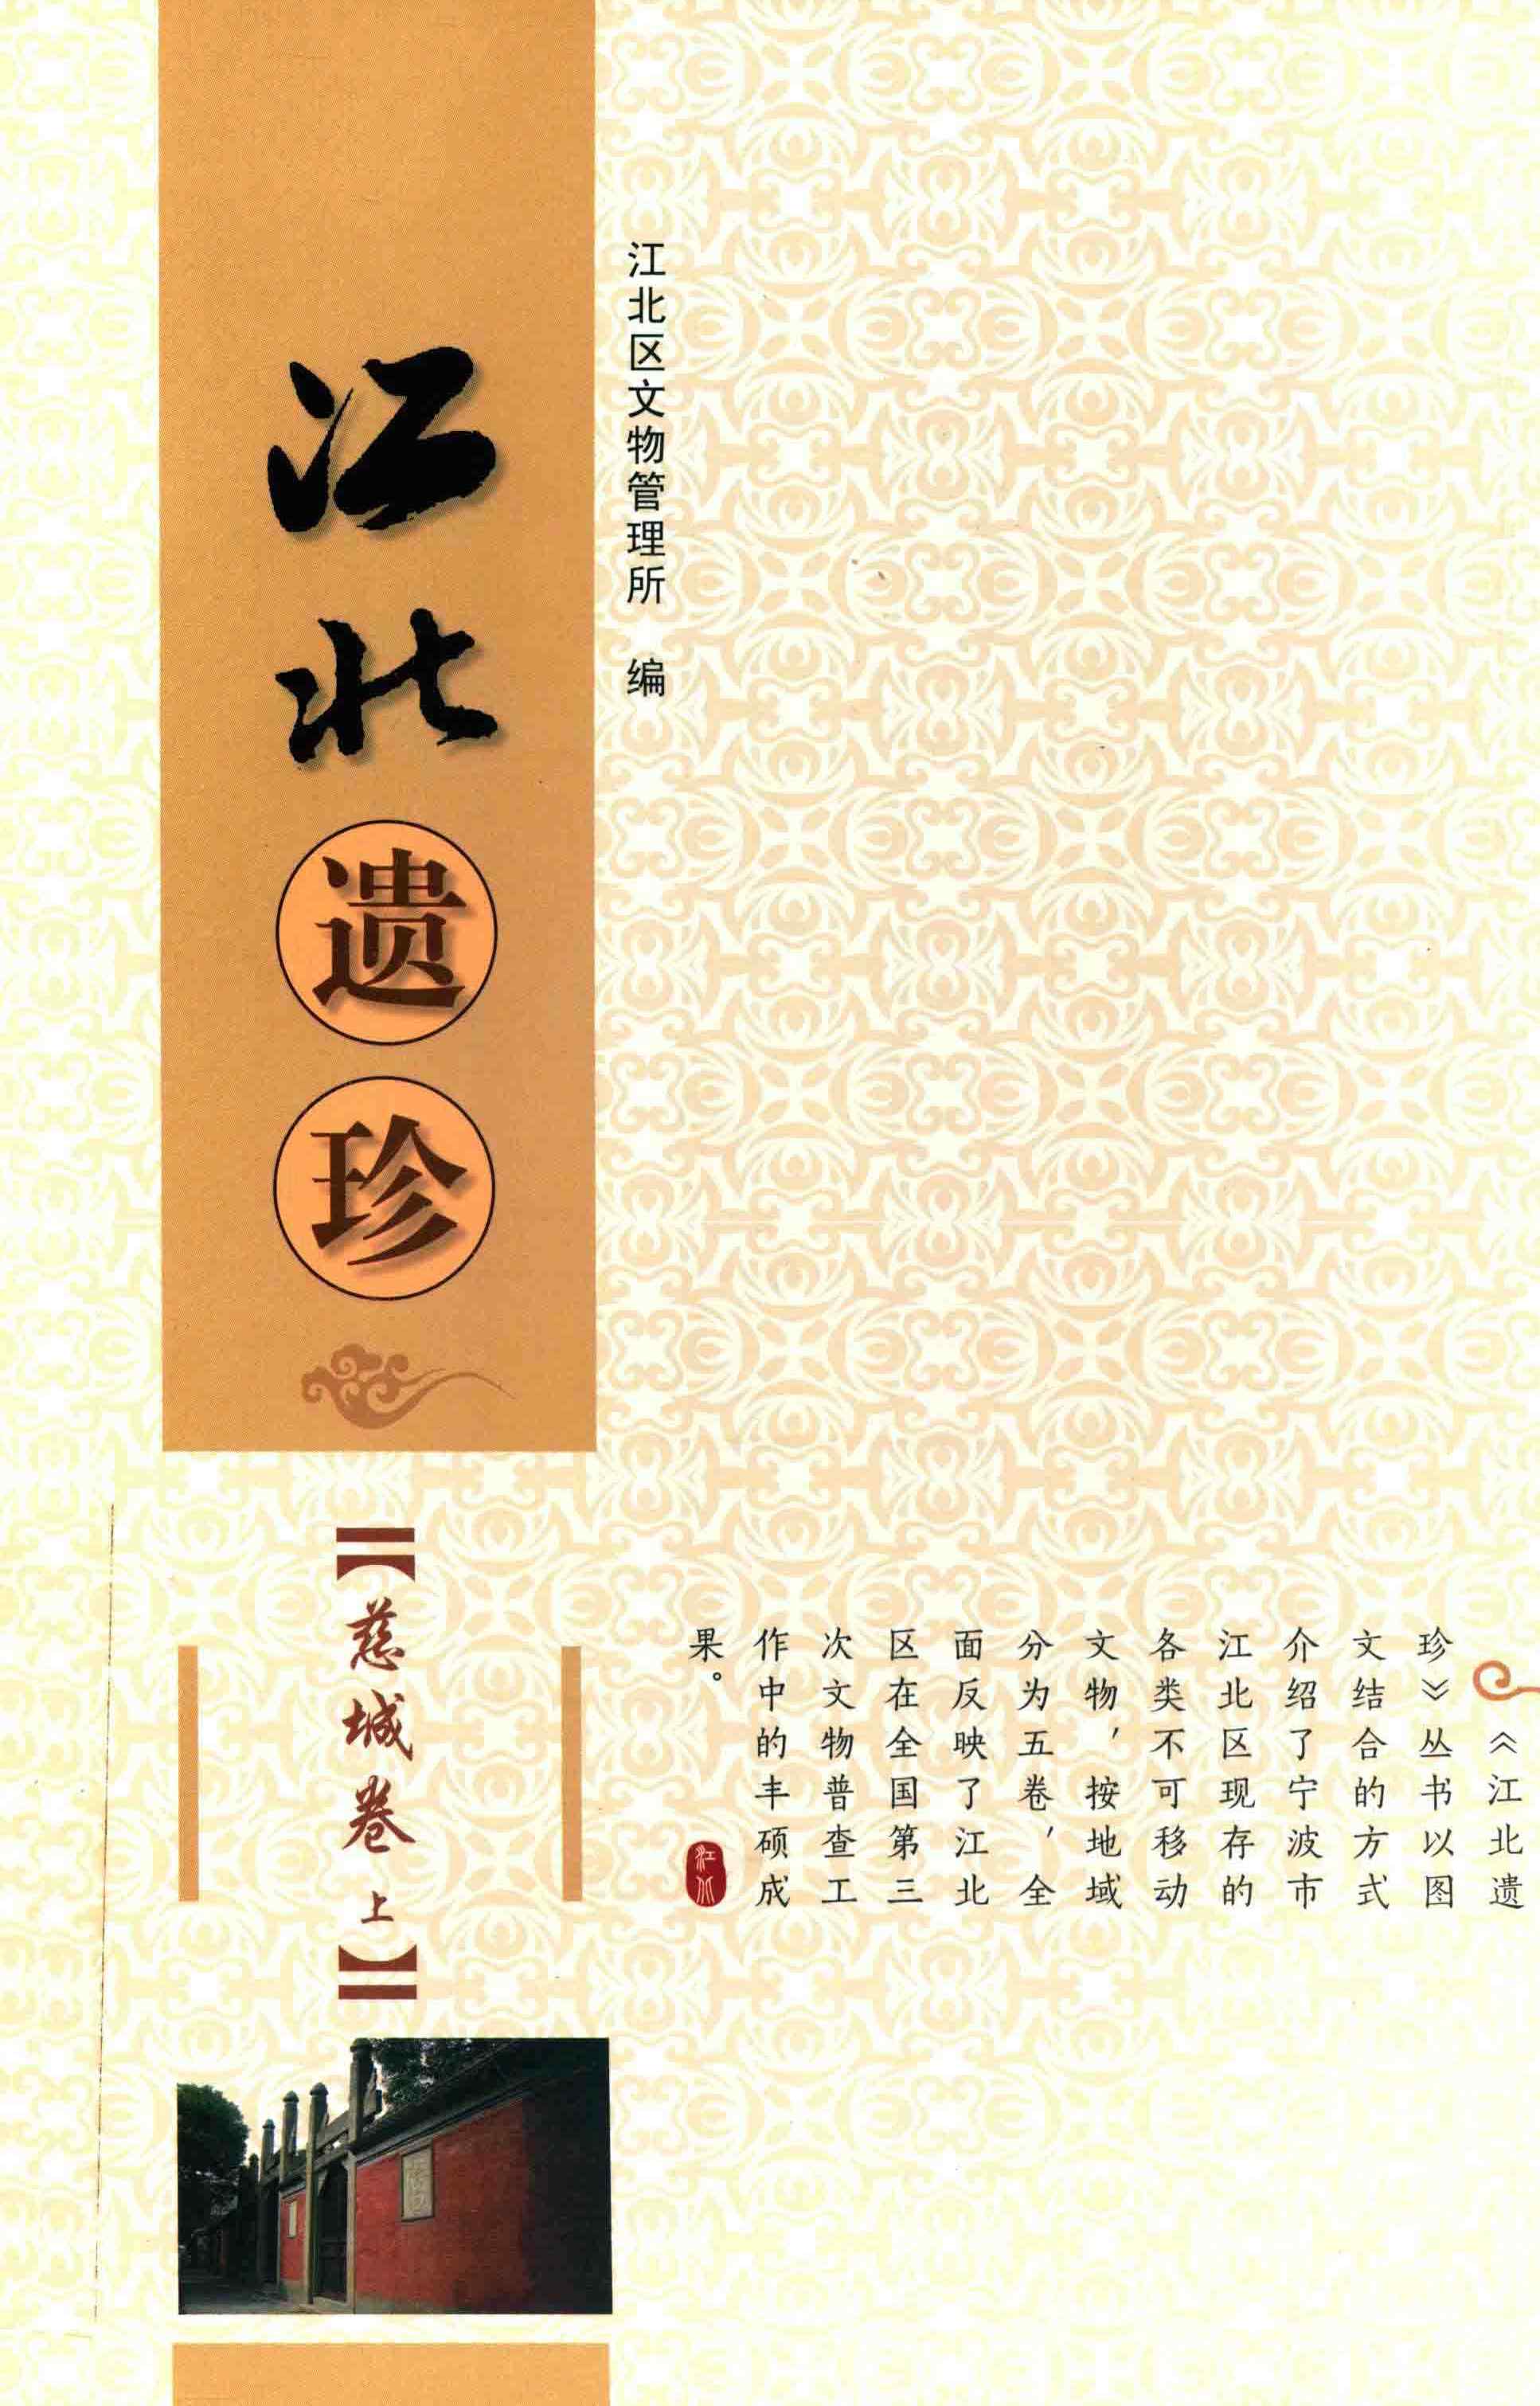 江北遗珍
江北区文物管理所 编
【慈城卷 上】
《江北遗
珍》丛书以图
文结合的方式
介绍了宁波市
江北区现存的
各类不可移动
文物，按地域
分为五卷，全
面反映了江北
区在全国第三
次文物普查工
作中的丰硕成
果。
江北